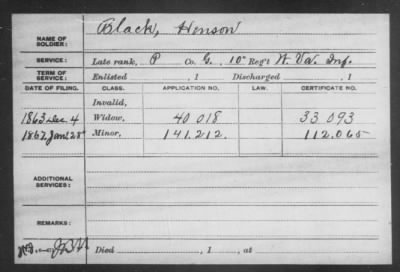 NAME OF SOLDIER: Black, Henson
SERVICE: Late rank, P Co. G, 10" Reg't W. Va. Inf.
TERM OF SERVICE: Enlisted , 1 Discharged , 1
DATE OF FILING. CLASS. APPLICATION NO. LAW. CERTIFICATE NO.
Invalid,
1863 Dec. 4 Widow, 40 018 33 093
1867 Jan'y 28" Minor, 141.212. 112.065
ADDITIONAL SERVICES:
REMARKS:
Died , 1 , at